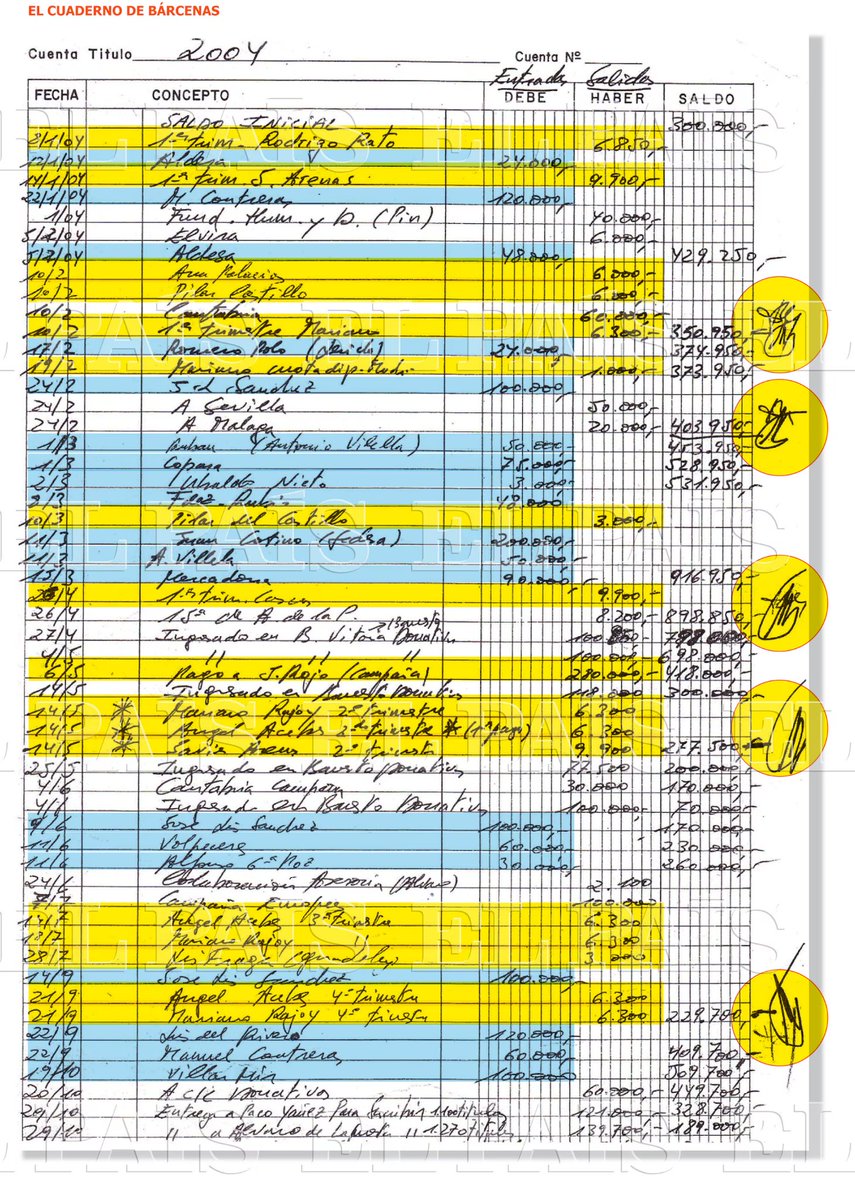 EL CUADERNO DE BÁRCENAS
Cuenta Titulo 2004 Cuenta Nº
Entradas Salidas
FECHA CONCEPTO DEBE HABER SALDO
SALDO INICIAL 300.000,-
8/1/04 1er trim. Rodrigo Rato 6.850,-
12/1/04 Aldesa 24.000,-
14/1/04 1er trim. J. Arenas 9.900,-
22/1/04 M. Contreras 120.000,-
1/04 Fund. Hum. y D. (Pin) 40.000,-
5/2/04 Elvira 6.000,-
5/2/04 Aldesa 48.000,- 429.250,-
10/2 Ana Palacio 6.000,-
10/2 Pilar Castillo 6.000,-
10/2 Cantabria 60.000,-
10/2 1er trimestre Mariano 6.300,- 350.950,-
17/2 Romero Polo 24.000,- 374.950,-
19/2 Mariano cuota 1.000,- 373.950,-
24/2 J. L. Sanchez 100.000,-
24/2 A Sevilla 50.000,-
24/2 A Malaga 20.000,- 403.950,-
1/3 (Antonio Vilella) 50.000,- 453.950,-
1/3 Copasa 75.000,- 528.950,-
2/3 Ubaldo Nieto 3.000,- 531.950,-
2/3 48.000
10/3 Pilar del Castillo 3.000,-
11/3 Juan Cotino (fedesa) 200.000,-
11/3 A. Vilella 50.000,-
15/3 Mercadona 90.000,- 916.950,-
4 1er trim. 9.900,-
26/4 15ª de A. de la P. 8.200,- 898.850,-
27/4 Ingresado en B. Vitoria Donativos 798.000,-
4/5 " " " 100.000,- 698.000,-
6/5 Pago a J. Rojo (Campaña) 280.000,- 418.000,-
14/5 Ingresado en Donativos 118.000 300.000,-
14/5 * Mariano Rajoy 2º trimestre 6.300
14/5 * Angel Acebes 2º trimestre * (1er pago) 6.300
14/5 * Javier Arenas 2º trimestre 9.900 277.500,-
25/5 Ingresado en Banesto Donativos 77.500 200.000,-
4/6 Cantabria Campaña 30.000 170.000,-
4/6 Ingresado en Banesto Donativos 100.000,- 70.000,-
9/6 Jose Luis Sanchez 100.000,- 170.000,-
11/6 Volpeceres 60.000,- 230.000,-
11/6 Alfonso Gª Poz 30.000,- 260.000,-
24/6 Colaboración Asesoria (Alvaro) 2.100
7/7 Campaña Europea 100.000
Angel Acebes 3º trimestre 6.300
Mariano Rajoy " 6.300
28/7 Fraga 3.000
14/9 Jose Luis Sanchez 100.000,-
21/9 Angel Acebes 4º trimestre 6.300
21/9 Mariano Rajoy 4º trimestre 6.300 229.700,-
22/9 Luis del Rivero 120.000,-
22/9 Manuel Contreras 60.000,- 409.700,-
19/10 Villar Mir 100.000 509.700,-
20/10 A c/c Donativos 60.000,- 449.700,-
29/10 Entrega a Paco Yañez Para 1100 titulos 121.000,- 328.700,-
29/10 " a Alvaro de Lapuerta " 1270 titulos 139.700,- 189.000,-
EL PAÍS